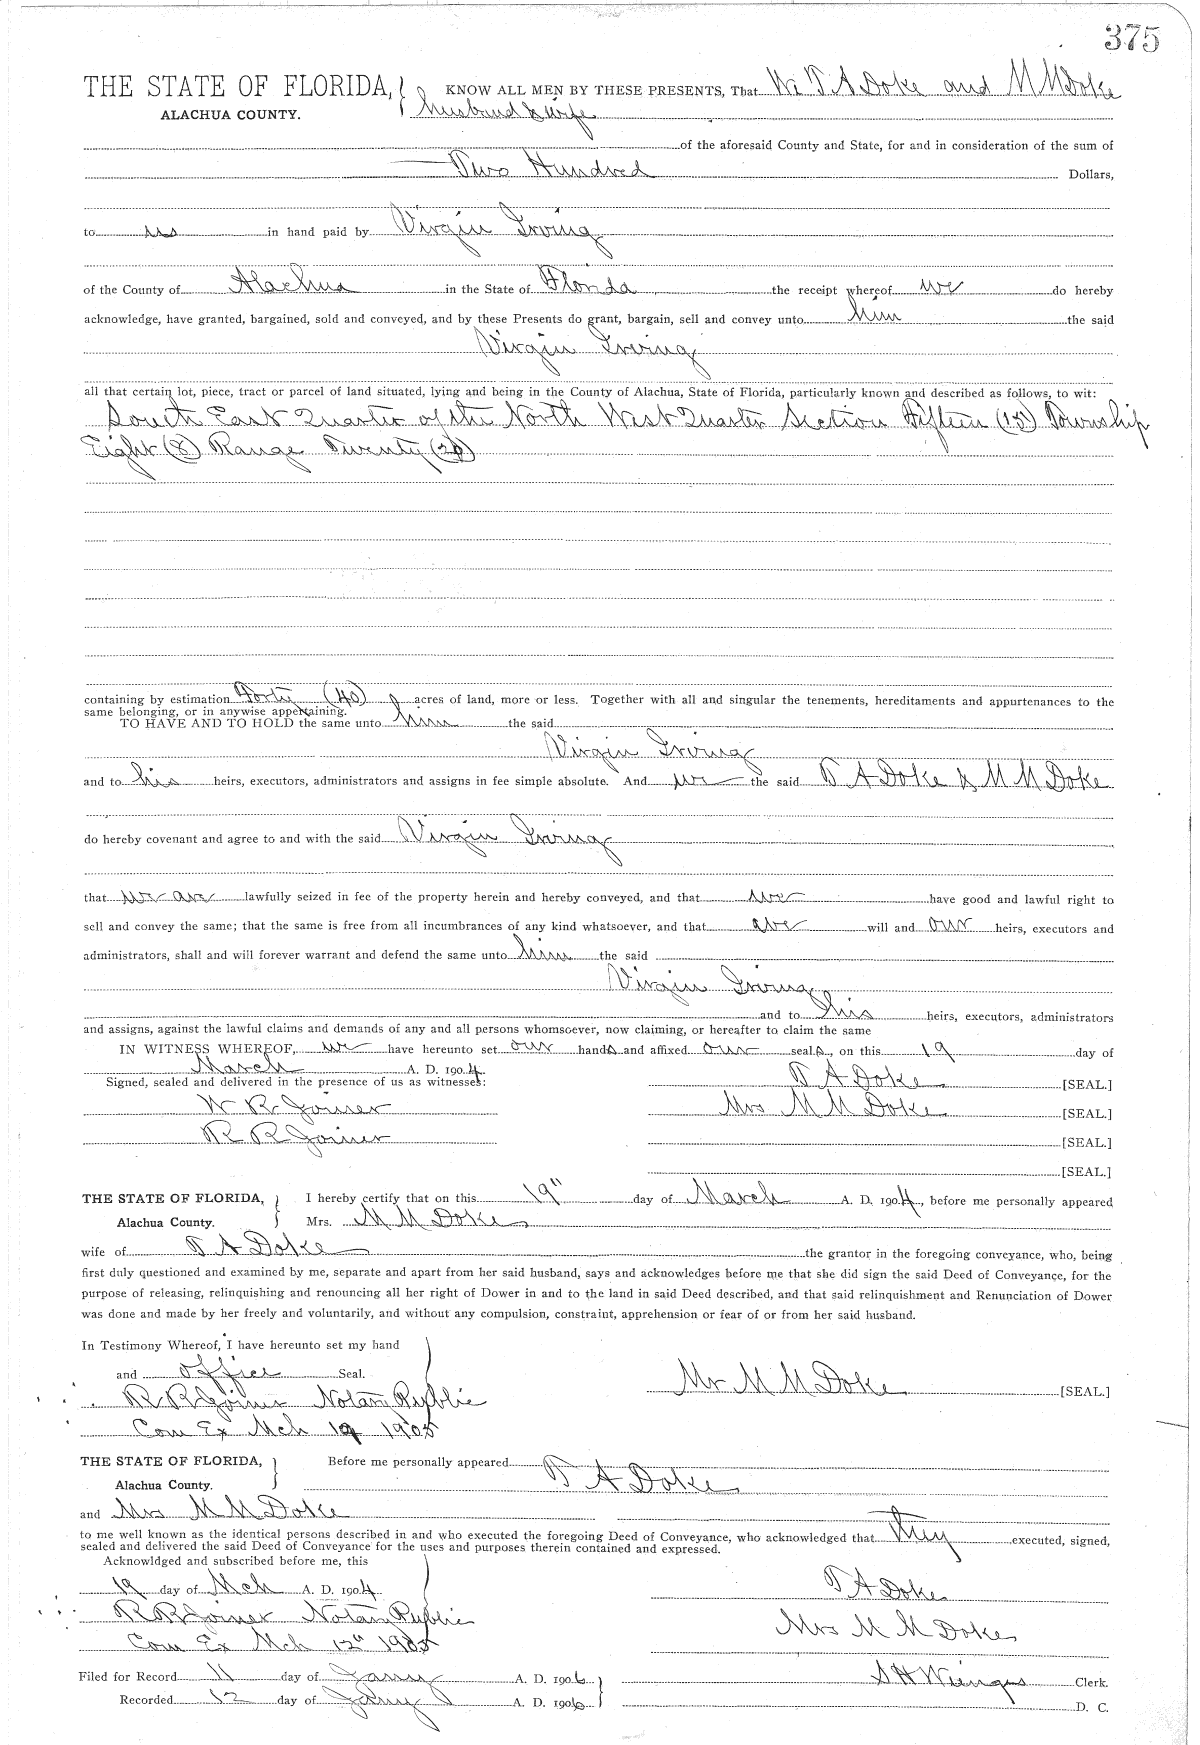 375
THE STATE OF FLORIDA, KNOW ALL MEN BY THESE PRESENTS, That We T A Doke and M M Doke
ALACHUA COUNTY. husband & wife
of the aforesaid County and State, for and in consideration of the sum of
Two Hundred Dollars,
to us in hand paid by Virgin Irving
of the County of Alachua in the State of Florida the receipt whereof we do hereby
acknowledge, have granted, bargained, sold and conveyed, and by these Presents do grant, bargain, sell and convey unto him the said
Virgin Irving
all that certain lot, piece, tract or parcel of land situated, lying and being in the County of Alachua, State of Florida, particularly known and described as follows, to wit:
South East Quarter of the North West Quarter Section Fifteen (15) Township
Eight (8) Range Twenty (20)
containing by estimation Forty (40) acres of land, more or less. Together with all and singular the tenements, hereditaments and appurtenances to the
same belonging, or in anywise appertaining.
TO HAVE AND TO HOLD the same unto him the said
Virgin Irving
and to his heirs, executors, administrators and assigns in fee simple absolute. And we the said T A Doke & M M Doke
do hereby covenant and agree to and with the said Virgin Irving
that we are lawfully seized in fee of the property herein and hereby conveyed, and that we have good and lawful right to
sell and convey the same; that the same is free from all incumbrances of any kind whatsoever, and that we will and our heirs, executors and
administrators, shall and will forever warrant and defend the same unto him the said
Virgin Irving
and to his heirs, executors, administrators
and assigns, against the lawful claims and demands of any and all persons whomsoever, now claiming, or hereafter to claim the same
IN WITNESS WHEREOF, we have hereunto set our hands and affixed our seals, on this 19 day of
March A. D. 1904.
Signed, sealed and delivered in the presence of us as witnesses: T A Doke [SEAL.]
W R Joiner Mrs M M Doke [SEAL.]
R R Joiner [SEAL.]
[SEAL.]
THE STATE OF FLORIDA, I hereby certify that on this 19" day of March A. D. 1904, before me personally appeared
Alachua County. Mrs. M M Doke
wife of T A Doke the grantor in the foregoing conveyance, who, being
first duly questioned and examined by me, separate and apart from her said husband, says and acknowledges before me that she did sign the said Deed of Conveyance, for the
purpose of releasing, relinquishing and renouncing all her right of Dower in and to the land in said Deed described, and that said relinquishment and Renunciation of Dower
was done and made by her freely and voluntarily, and without any compulsion, constraint, apprehension or fear of or from her said husband.
In Testimony Whereof, I have hereunto set my hand
and office Seal. Mr M M Doke [SEAL.]
R R Joiner Notary Public
Com Ex Mch 19 1905
THE STATE OF FLORIDA, Before me personally appeared T A Doke
Alachua County.
and Mrs M M Doke
to me well known as the identical persons described in and who executed the foregoing Deed of Conveyance, who acknowledged that they executed, signed,
sealed and delivered the said Deed of Conveyance for the uses and purposes therein contained and expressed.
Acknowldged and subscribed before me, this
19 day of Mch A. D. 1904 T A Doke
R R Joiner Notary Public Mrs M M Doke
Com Ex Mch 12" 1905
Filed for Record 11 day of Jany A. D. 1906 S H Wienges Clerk.
Recorded 12 day of Jany A. D. 1906 D. C.